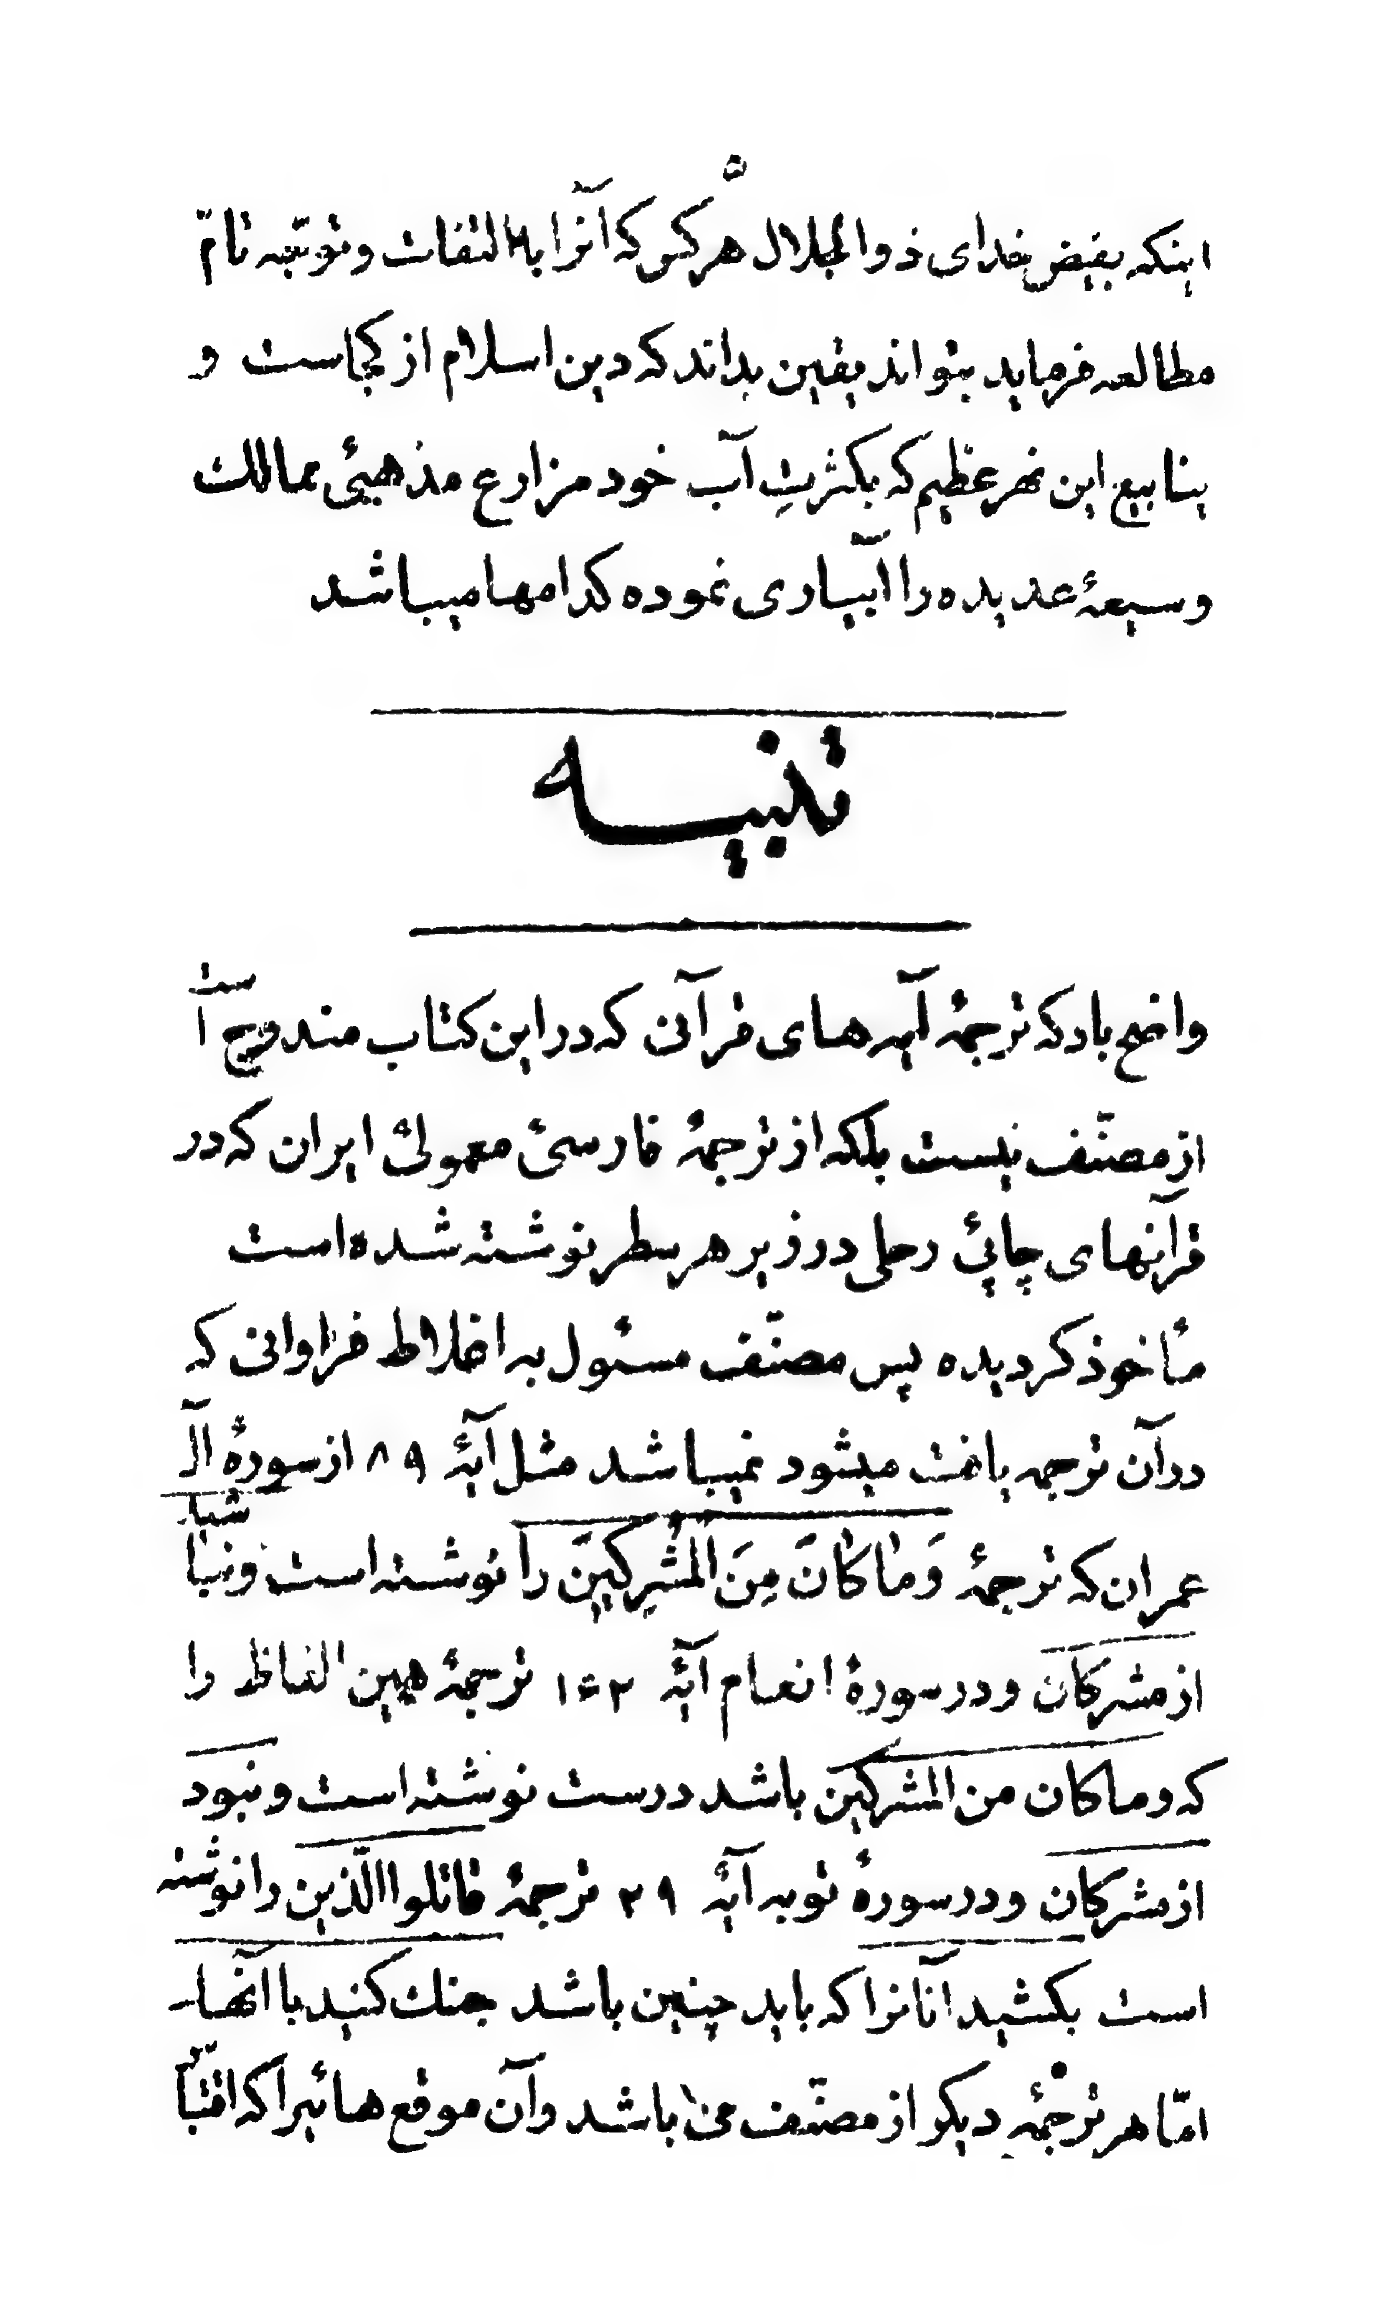 ۵
اینکه بفیض خدای ذوالجلال هر کس که آنرا با التفات و توجّه تامّ
مطالعه فرماید بتواند بیقین بداند که دین اسلام از کجاست و
ینابیع این نهر عظیم که بکثرتِ آب خود مزارع مذهبیٔ ممالک
وسیعهٔ عدیده را آبیاری نموده کدامها میباشد
تنبیه
واضح باد که ترجمهٔ آیه های قرآنی که در این کتاب مندرج است
از مصنّف نیست بلکه از ترجمهٔ فارسیٔ معمولیٔ ایران که در
قرآنهای چاپیٔ رحلی در زیر هر سطر نوشته شده است
مأخوذ کردیده پس مصنّف مسئول به اغلاط فراوانی که
در آن ترجمه یافت میشود نمیباشد مثل آیهٔ ۸۹ از سورهٔ آل
عمران که ترجمهٔ وَمٰا کٰانَ مِنَ الْمُشْرِکینَ را نوشته است و نباشید
از مشرکان و در سورهٔ انعام آیهٔ ۱۶۲ ترجمهٔ همین الفاظ را
که و ما کان من المشرکین باشد درست نوشته است و نبود
از مشرکان و در سورهٔ توبه آیهٔ ۲۹ ترجمهٔ قاتلوا الّذین را نوشته
است بکشید آنانرا که باید چنین باشد جنك کنید با آنها
امّا هر ترجمهٔ دیکر از مصنّف می باشد و آن موقع هائیرا که اقتباس